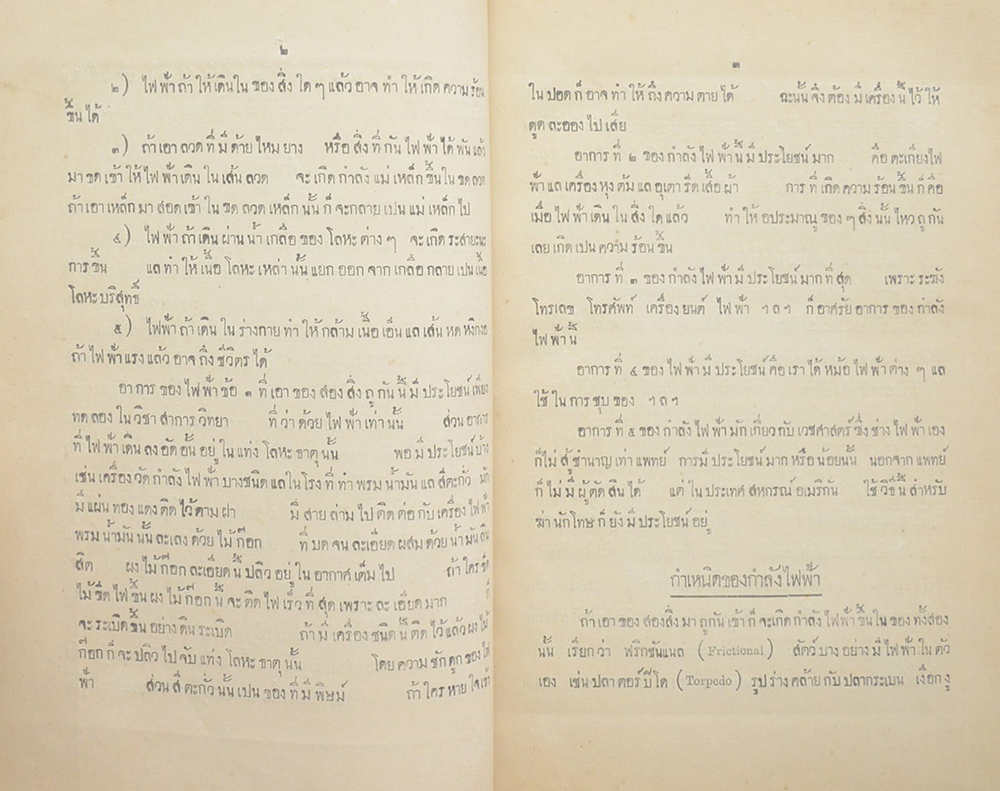 ๒
๒) ไฟฟ้าถ้าให้เดินในของสิ่งใดๆแล้วอาจทำให้เกิดความร้อน
ขึ้นได้
๓) ถ้าเอาลวดที่มีด้ายไหมยาง หรือสิ่งที่กันไฟฟ้าได้พันแล้ว
มาขดเข้าให้ไฟฟ้าเดินในเส้นลวด จะเกิดกำลังแม่เหล็กขึ้นในขดลวด
ถ้าเอาเหล็กมาสอดเข้าในขดลวดเหล็กนั้นก็จะกลายเปนแม่เหล็กไป
๔) ไฟฟ้าถ้าเดินผ่านน้ำเกลือของโลหะต่างๆ จะเกิดระส่ายะนะ
การขึ้น แลทำให้เนื้อโลหะเหล่านั้นแยกออกจากเกลือกลายเปนเนื้อ
โลหะบริสุทธิ์
๕) ไฟฟ้าถ้าเดินในร่างกายทำให้กล้ามเนื้อเอ็นแลเส้นหดหงิกงอ
ถ้าไฟฟ้าแรงแล้วอาจถึงชีวิตรได้
อาการของไฟฟ้าข้อ ๑ ที่เอาของสองสิ่งถูกันนี้มีประโยชน์เพียง
ทดลองในวิชาสาการวิทยา ที่ว่าด้วยไฟฟ้าเท่านั้น ส่วนอาการ
ที่ไฟฟ้าเดินลงอัดอั้นอยู่ในแท่งโลหะธาตุนั้น พอมีประโยชน์บ้าง
เช่นเครื่องวัดกำลังไฟฟ้าบางชนิดแลในโรงที่ทำพรมน้ำมันแลสีตะกั่ว มัก
มีแผ่นทองแดงติดไว้ตามฝา มีสายล่ามไปติดต่อกับเครื่องไฟฟ้า
พรมน้ำมันนั้นละเลงด้วยไม้ก๊อก ที่บดจนละเอียดผสมด้วยน้ำมันลิน
สีด ผงไม้ก๊อกละเอียดนี้ปลิวอยู่ในอากาศเต็มไป ถ้าใครขีด
ไม้ขีดไฟขึ้นผงไม้ก๊อกนี้จะติดไฟเร็วที่สุดเพราะละเอียดมาก ก็
จะระเบิดขึ้นอย่างดินระเบิด ถ้ามีเครื่องชนิดนี้ติดไว้แล้วผงไม้
ก๊อกก็จะปลิวไปจับแท่งโลหะธาตุนั้น โดยความชักดูดของไฟ
ฟ้า ส่วนสีตะกั่วนั้นเปนของที่มีพิษม์ ถ้าใครหายใจเข้า
๓
ในปอดก็อาจทำให้ถึงความตายได้ ฉะนั้นจึงต้องมีเครื่องนี้ไว้ให้
ดูดละอองไปเสีย
อาการที่ ๒ ของกำลังไฟฟ้านี้มีประโยชน์มาก คือตะเกียงไฟ
ฟ้าแลเครื่องหุงต้มแลอุเตารีดเสื้อผ้า การที่เกิดความร้อนขึ้นก็คือ
เมื่อไฟฟ้าเดินในสิ่งใดแล้ว ทำให้อประมาณูของๆสิ่งนั้นไหวถูกัน
เลยเกิดเปนความร้อนขึ้น
อาการที่ ๓ ของกำลังไฟฟ้ามีประโยชน์มากที่สุด เพราะระฆัง
โทรเลข โทรศัพท์ เครื่องยนต์ ไฟฟ้า ฯลฯ ก็อาศรัยอาการของกำลัง
ไฟฟ้านี้
อาการที่ ๔ ของไฟฟ้ามีประโยชน์คือเราได้หม้อไฟฟ้าต่างๆแล
ใช้ในการชุบของ ฯลฯ
อาการที่ ๕ ของกำลังไฟฟ้ามักเกี่ยวกับเวชศาสตร์ซึ่งช่างไฟฟ้าเอง
ก็ไม่สู้ชำนาญเท่าแพทย์ การมีประโยชน์มากหรือน้อยนั้น นอกจากแพทย์
ก็ไม่มีผู้ตัดสินได้ แต่ในประเทศสหกรณ์อเมริกัน ใช้วิธีนี้สำหรับ
ฆ่านักโทษก็ยังมีประโยชน์อยู่
กำเหนิดของกำลังไฟฟ้า
ถ้าเอาของสองสิ่งมาถูกันเข้าก็จะเกิดกำลังไฟฟ้าขึ้นในของทั้งสอง
นั้น เรียกว่า ฟริกชันแนล (Frictional) สัตว์บางอย่างมีไฟฟ้าในตัว
เอง เช่นปลาตอร์ปีโด (Torpedo) รูปร่างคล้ายกับปลากระเบน เงือกงู